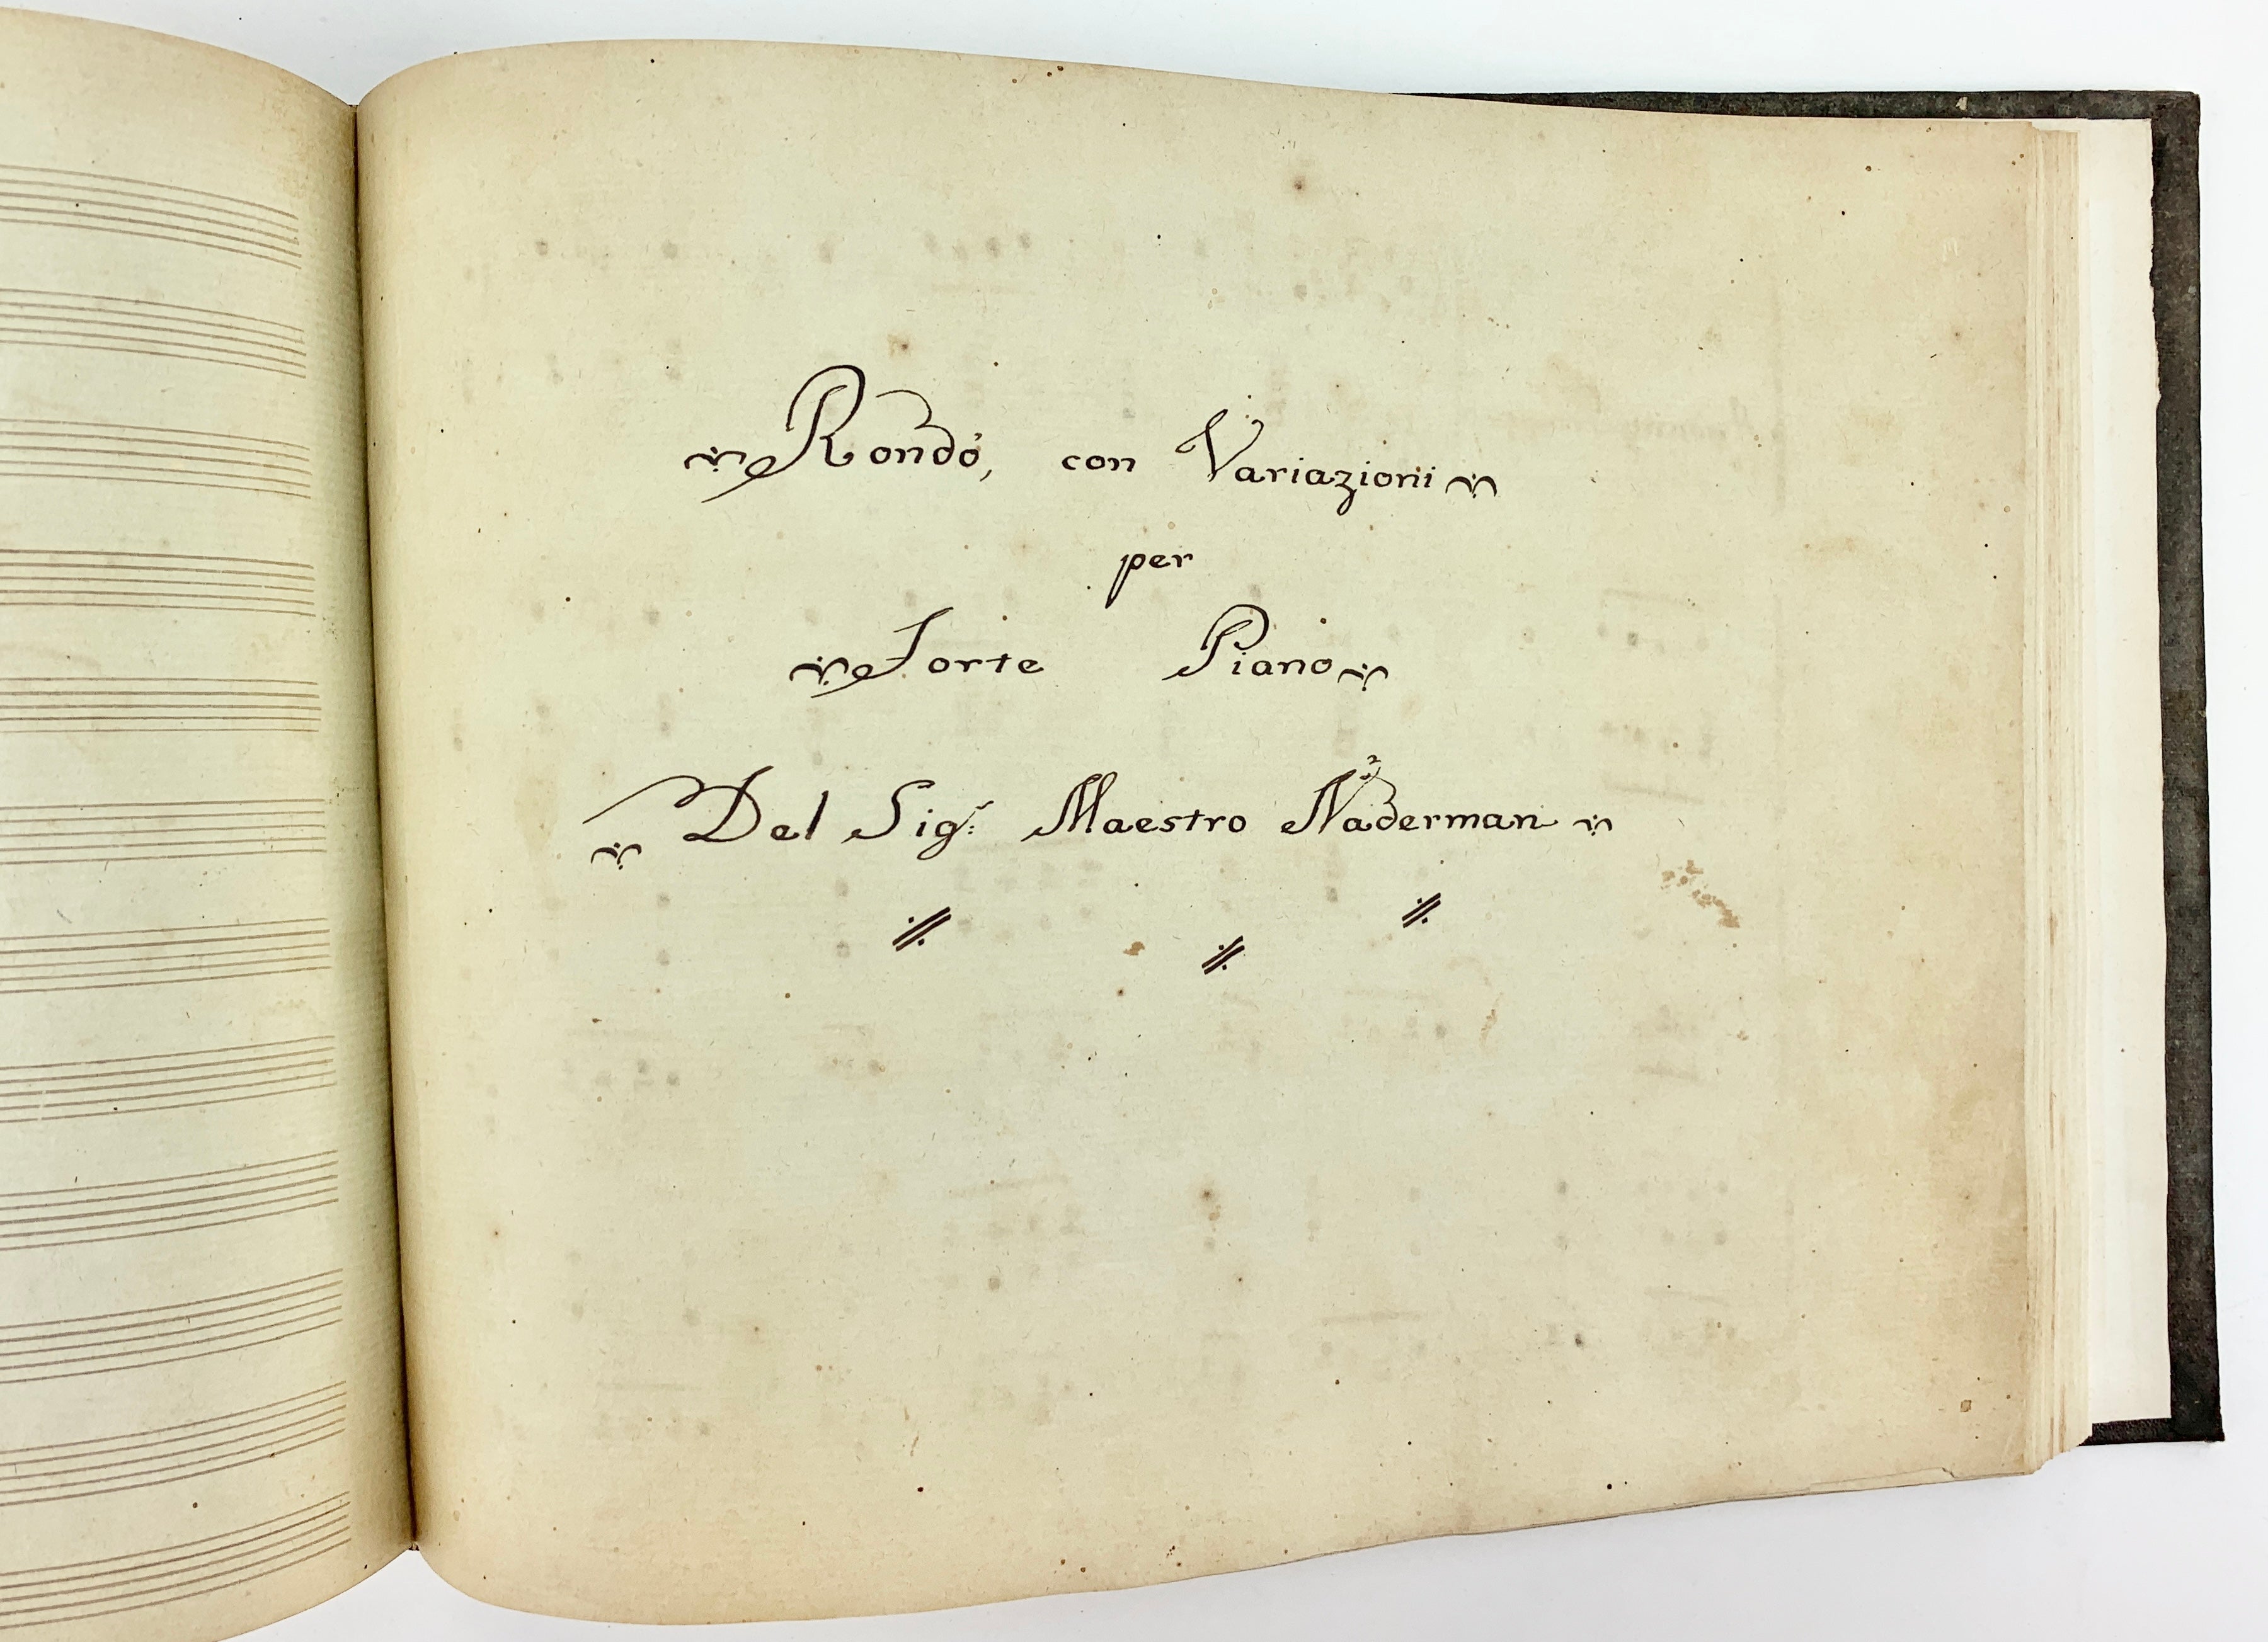 Rondó, con Variazioni
per
Forte Piano
Del Sigr: Maestro Naderman